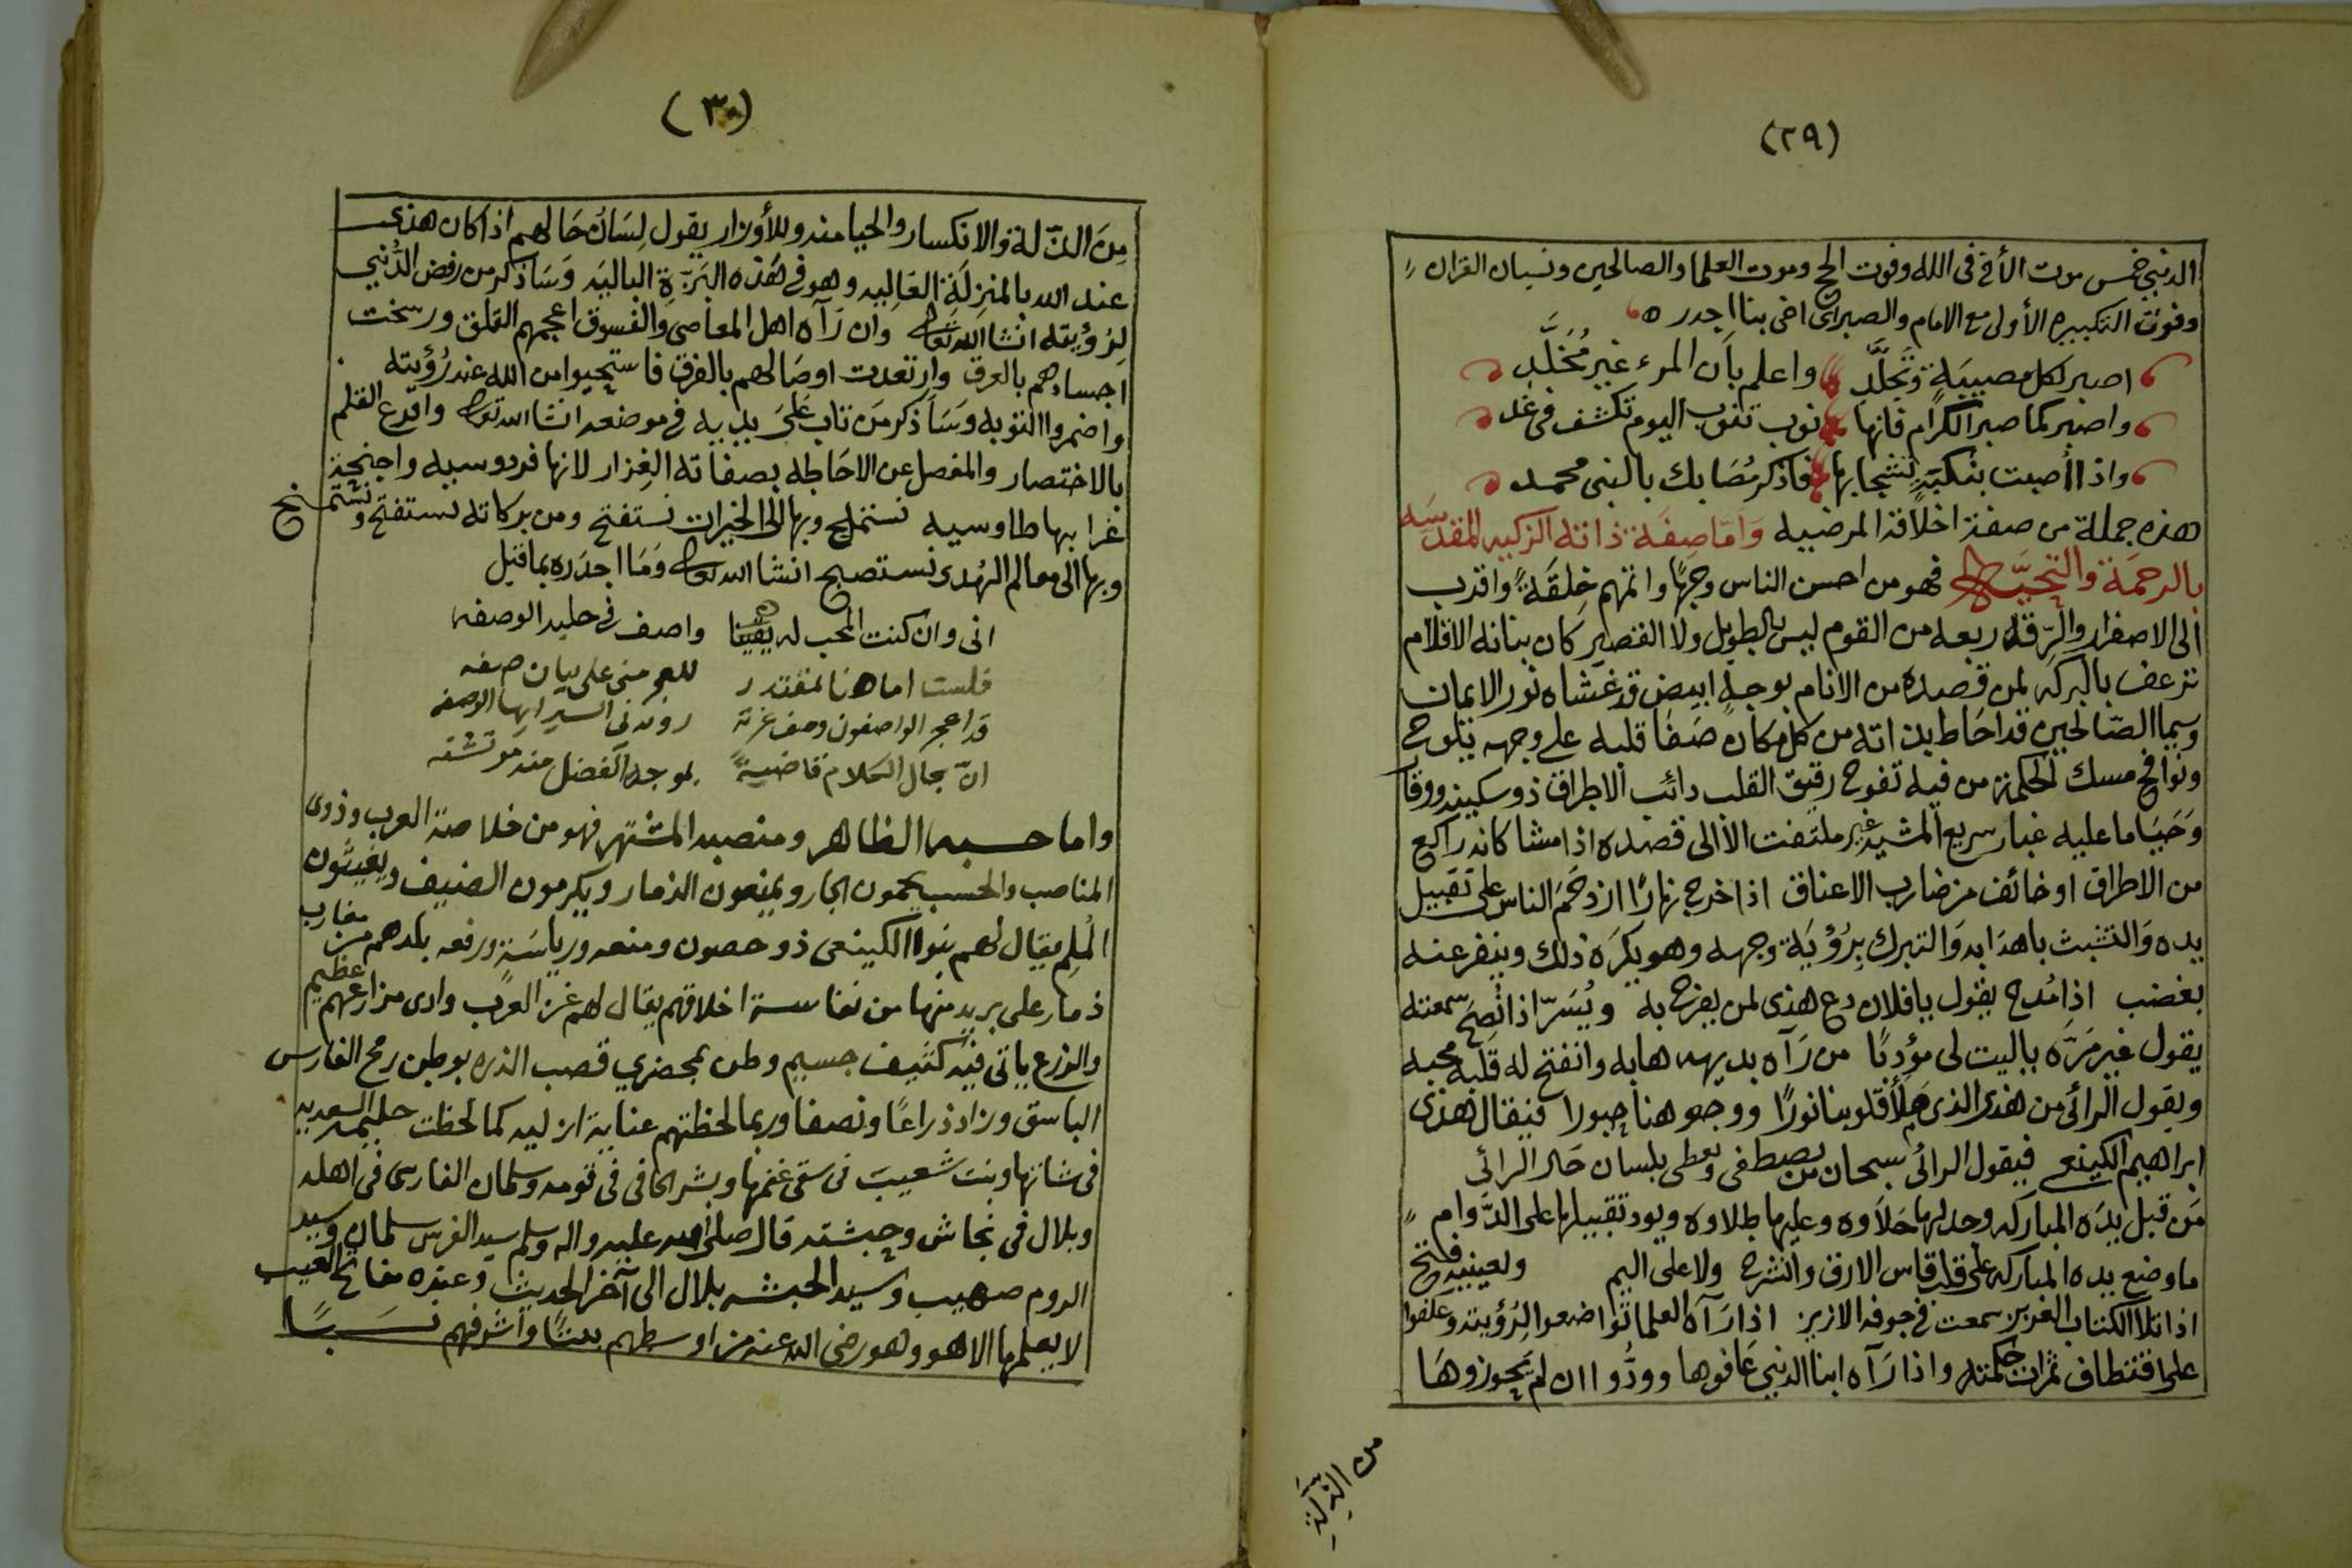 (٢٩)
الدنيى خمس موت الأخ فى الله وفوت الحج وموت العلما والصالحين ونسيان القران
وفوت التكبيره الأولى مع الامام والصبر اى اخى بنا اجدر ه
اصبر لكل مصيبَة وتَجَلَّدِ واعلم باَن المرء غير مُخَلَّدِ
واصبر كما صبر الكرام فانها نوب تنوب اليوم تكشف فى غدِ
واذا أصبت بنكبَةٍ تشجا بها فاذكر مُصَابك بالنبى محمد
هذه جملة من صفة اخلاقه المرضيه وَامّا صِفَة ذاته الزكيه المقدسَه
بالرحمَة والتحيَّه فهو من احسن الناس وجهًا واتمهم خِلقَةً واقرب
الى الاصفرار والرّقة ربعه من القوم ليس بالطويل ولا القصير كان بنانه الاقلام
تزعف بالبركه لمن قصده من الانام بوجهٍ ابيض قد غشاه نور الايمان
وسيما الصّالحين قد احَاط بذاته من كل مكان صَفَا قلبه على وجهه يتلوح
ونوافح مسك الحكمة من فيه تفوح رقيق القلب دائب الاطراق ذو سكينه ووقار
وَحَيَا ما عليه غبار سريع المشيه غير ملتفت الا الى قصده اذا مشا كانه راكع
من الاطراق او خائف من ضارب الاعناق اذا خرج نهارًا ازدحَمَ الناس على تقبيل
يده وَالتشبث باهدَابه وَالتبرك بِرُؤيَة وجهه وهو يكرَه ذلك وينفر عنه
بغضب اذا مُدح يقول يا فلان دع هذى لمن يفرح به ويُسَرّ اذا نُصِحَ سمعته
يقول غير مَرَّه ياليت لى مؤدبًا من رَآه بديهه هابه وانفتح له قَلبه محبه
ويقول الرائى من هذى الذى مَلأ قلوبنا نورًا ووجوهنا حبورا فيقال هذى
ابراهيم الكينعى فيقول الرائى سبحان من يصطفى ويعطى بلسان حَال الرائى
مَن قبل يدَه المباركه وجد لها حَلاَوه وعليها طلاوه ويود تقبيلها على الدَّوام
ما وضع يده المباركه على قلب قاس الا رق وانشرح ولا على اليم ولعينيه فتح
اذا تلا الكتاب العزيز سمعت فى جوفه الازيز اذا رَآه العلما تواضعوا لرُؤيته وعلفوا
على اقتطاف ثمرات حكمته واذا رَآه ابنا الدنيى عَافوها وودُّوا ان لم يَحوزوهَا
من الذِلَّةِ
(٣٠)
مِنَ الذّلة والانكسار والحيا منه وللأوزار يقول لِسَانُ حَالهم اذا كان هذى
عند الله بالمنزِلَةِ العَاليه وهو فى هَذه البَزّةِ الباليَه وَسَاذكر من رفض الدُّنيى
لِرُؤيته انشا الله تعالى وان رَآه اهل المعاصى والفسوق اعجمهم القلق ورسخت
اجسادهم بالعرق وارتعدت اوصَالهم بالفرق فاستحيوا من الله عند رُؤيته
واضمروا التوبه وَسَاَذكر مَن تاب عَلىَ يديه فى موضعه انشا الله تعالى واقرع القلم
بالاختصار والمفصل عن الاحَاطه بصفاته الغِزار لانها فردوسيه واجنحة
غرابها طاوسيه نستملح وبها الى الخيرات نستفتح ومن بركاته نستفتح ونستمنح
وبها الى معالم الهُدى نستصبح انشا الله تعالى وَمَا اجدَره بما قيل
انى وان كنت المحب له يقينا واصف فى حليه الوصفه
فلست اما هنا لمقتدر للعجز منى على بيان صفه
قد اعجز الواصفون وصف غرته
انّ مجال الكلام قاضيةً
واما حسبه الظاهر ومنصبه المشتهر فهو من خلاصة العرب وذوى
المناصب والحسب يحمون الجار ويمنعون الذمار ويكرمون الضيف ويغيثون
المُلِم يقال لهم بَنوا الكينعى ذو حصون ومنعه ورياسَةٍ ورفعه بلدهم من مغارب
ذمار على بريد منها من نفاسة اخلاقهم يقال لهم غز العرب وادى مزارعهم عظيم
والزرع ياتى فيه كثيف جسيم وطن بمحضري قصب الذره بوطن رمح الفارس
الباسق وزاد ذراعًا ونصفا وربما لحظتهم عناية ازليه كما لحظت حليمه السعديه
فى شانها وبنت شعيب فى سقى غنمها وبشر الحافى فى قومه وسلمان الفارسى فى اهله
وبلال فى نجاش وحبشته قال صلى الله عليه واله وسلم سيد الفرس سلمان وسيد
الروم صهيب وسيد الحبشه بلال الى آخر الحديث وعنده مفاتح الغيب
لا يعلمها الا هو وهو رضى الله عنه من اوسطهم بيتًا واشرفهم نسَبًا